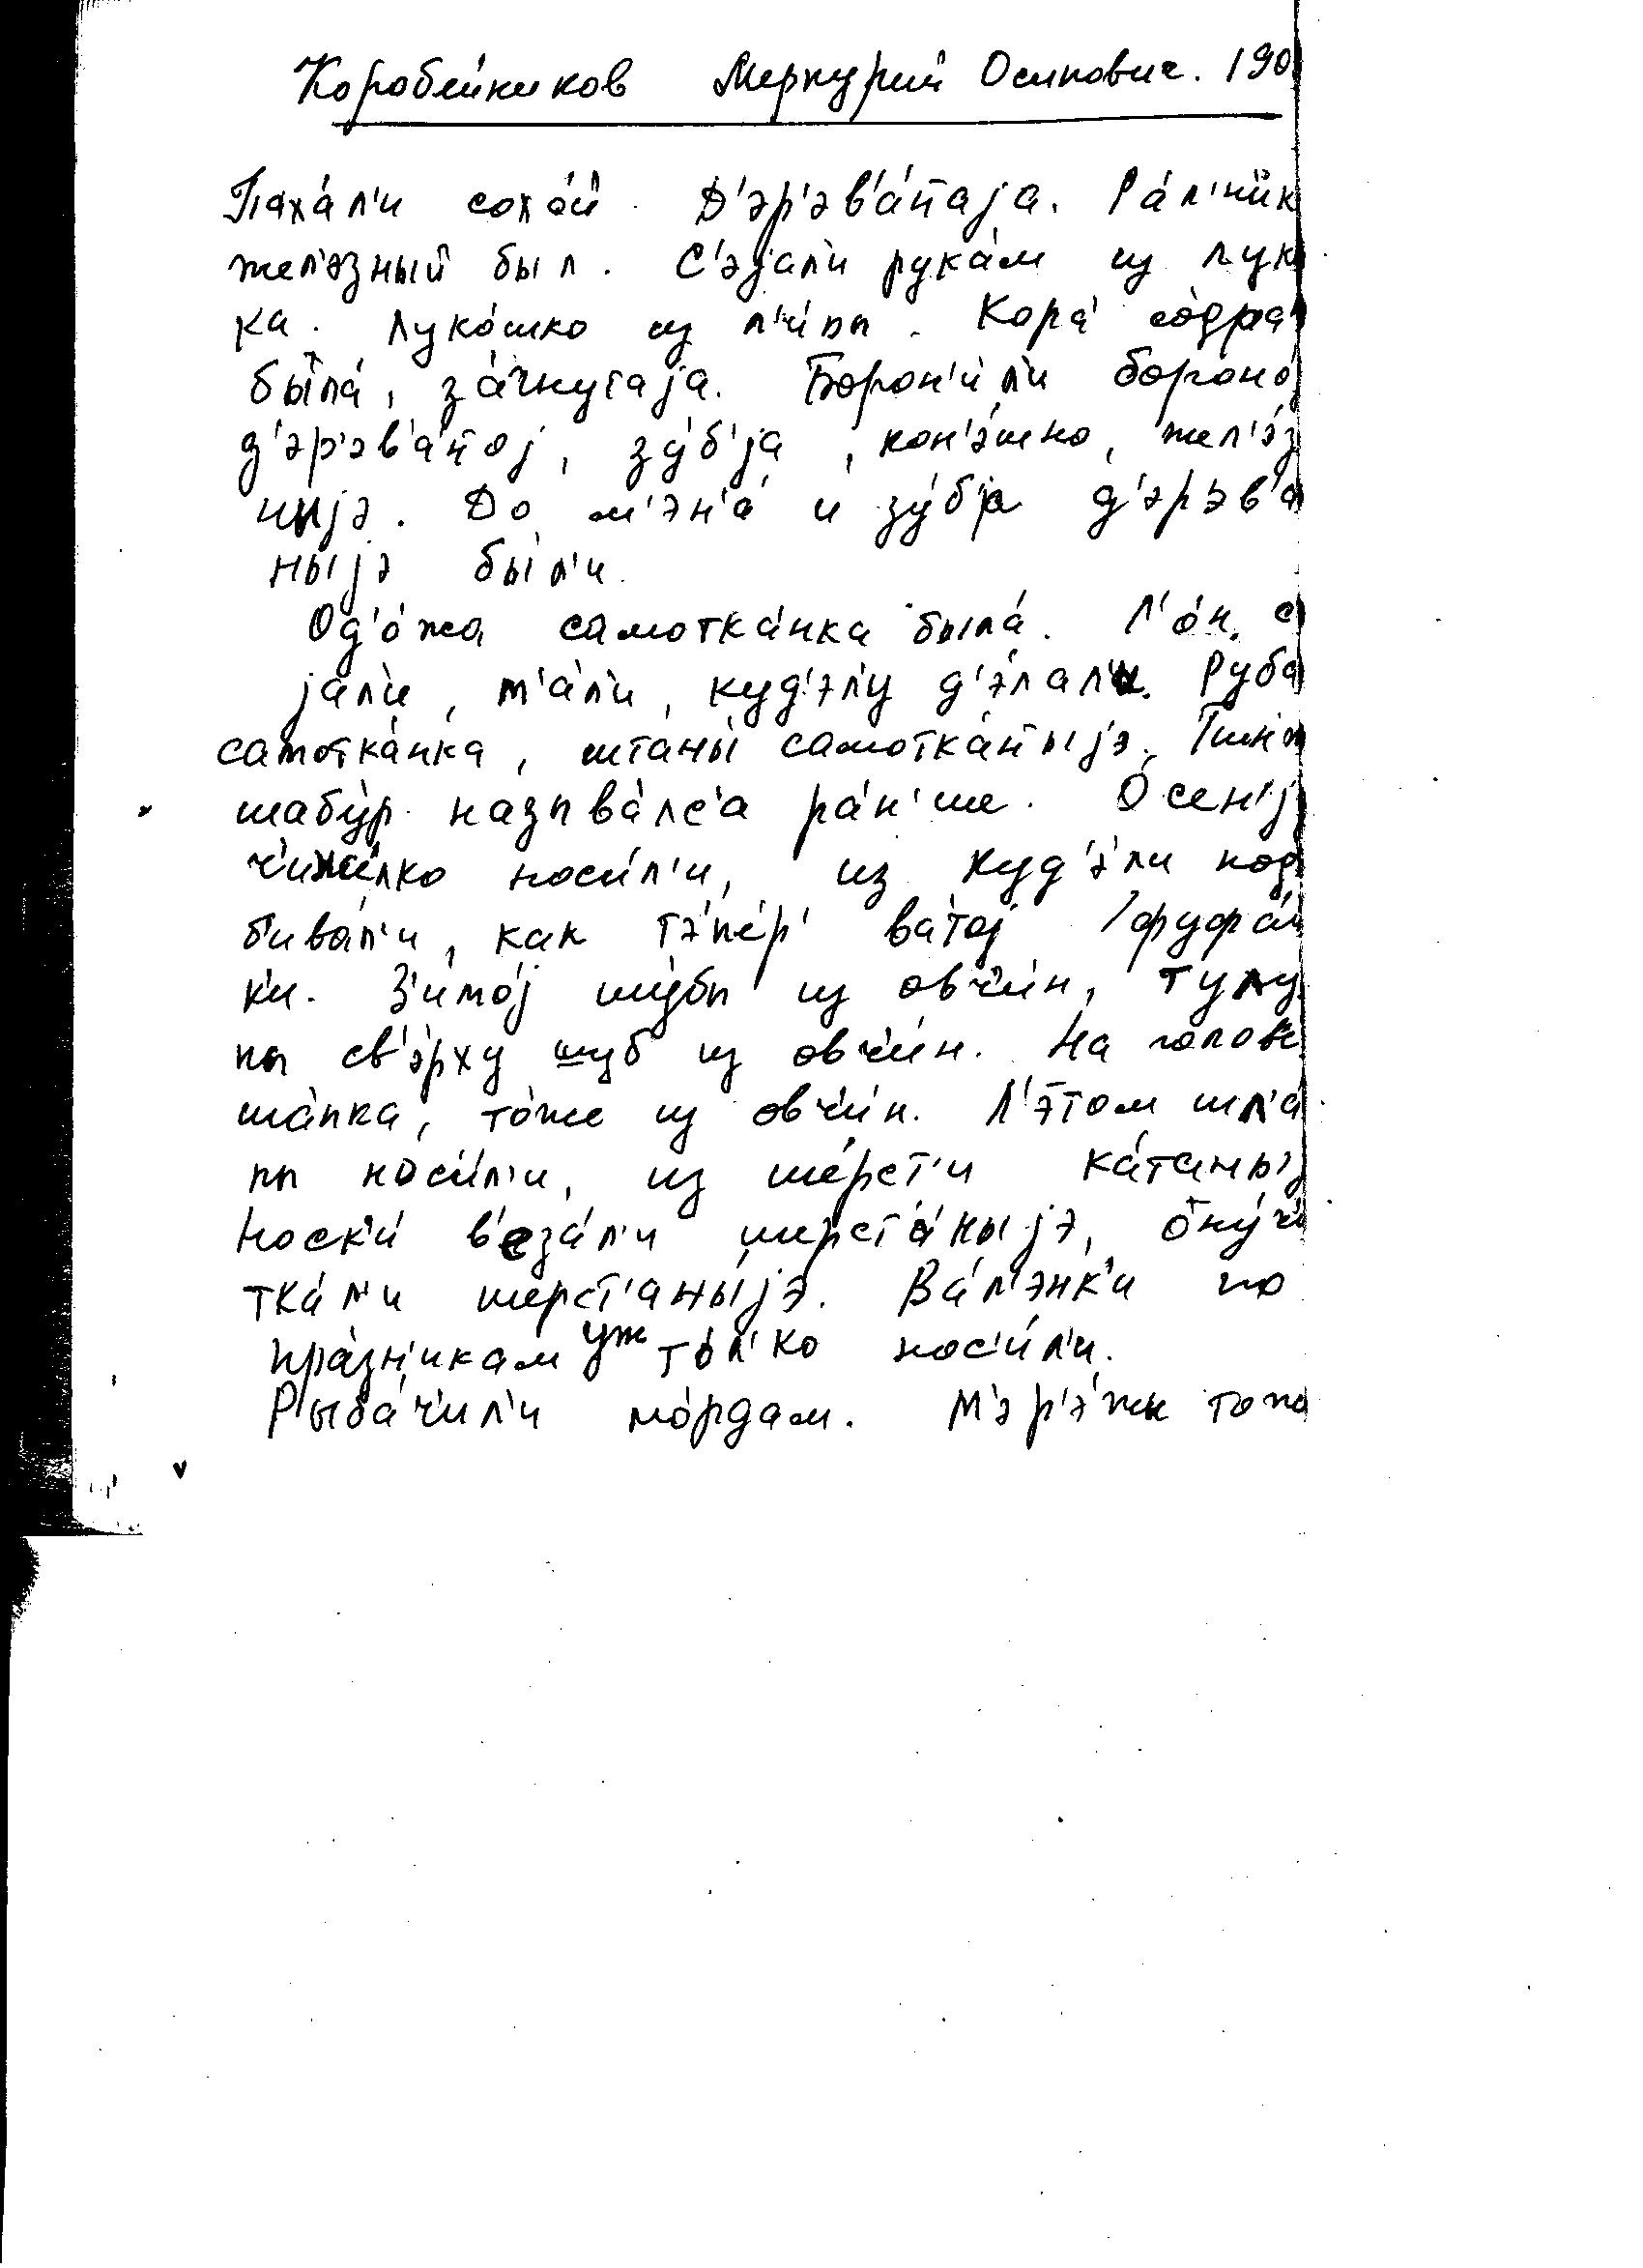 Коробейников Меркурий Осипович. 190
Паха́л'и сохо́й. Д'эр'эв'а́наjа. Ра́л'ник
жел'эзный был. С'э́jал'и рука́м из лук
ка. Луко́шко из л'и́пы. Кора́ содра
была́, за́гнутаjа. Борон'и́л'и бороно́
д'эр'эв'а́ноj, зу́б'jа, кон'э́шно, жел'э́з
ныjэ. До м'эн'а́ и зу́б'jа д'эр'эв'а
ныjэ бы́л'и.
Од'о́жа самотка́нка была́. Л'он с
jал'и, м'а́л'и, куд'э́л'у д'э́лал'и. Руба
самотка́нка, штаны́ самотка́ныjэ.
шабу́р называ́лс'а ра́н'ше. О́сен'j
чижо́лко нос'и́л'и, из куд'э́л'и под
б'ива́л'и, как т'эп'е́р' ва́тоj /фуфа́й
к'и. З'имо́j шу́бы из овчи́н, тулу
пы св'э́рху шуб из овчи́н. На голов
ша́пка, то́же из овчи́н. Л'э́том шл'а́
пы нос'и́л'и, из ше́рст'и ка́таны
Носк'и́ в'еза́л'и шерст'а́ныjэ, ону́чи
тка́л'и шерст'аны́jэ. Ва́л'энк'и по
пра́зн'икам уж то́л'ко нос'и́л'и.
Рыба́чил'и мо́рдам. М'эр'э́жы тожо